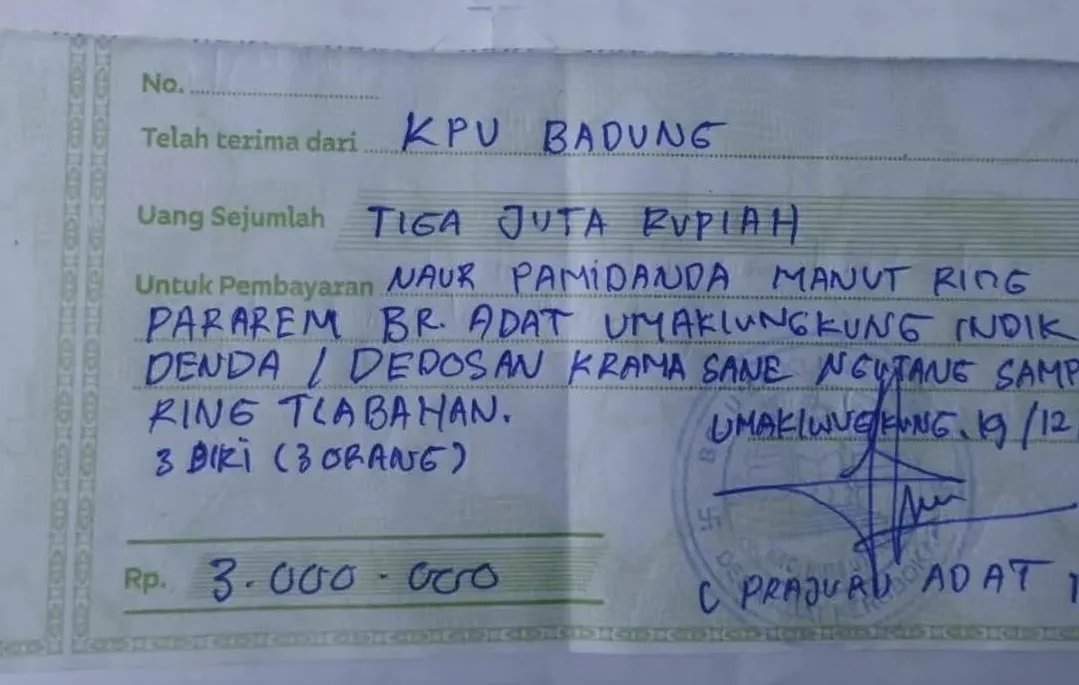 No.
Telah terima dari KPU BADUNG
Uang Sejumlah TIGA JUTA RUPIAH
Untuk Pembayaran NAUR PAMIDANDA MANUT RING
PARAREM BR. ADAT UMAKLUNGKUNG INDIK
DENDA / DEDOSAN KRAMA SANE NGUTANG SAMP
RING TLABAHAN.
UMAKLUNGKUNG, 19/12
3 DIRI (3 ORANG)
Rp. 3.000.000
( PRAJURU ADAT )